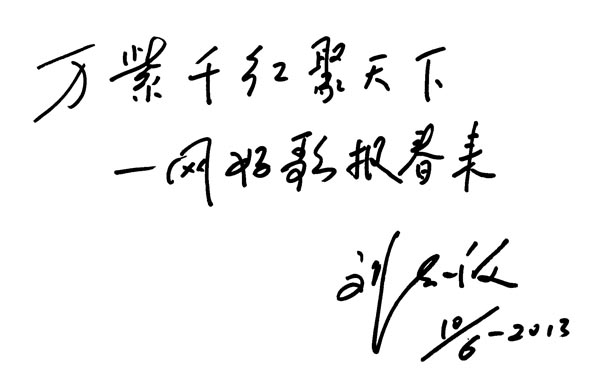 万紫千红聚天下
一网好歌报春来
刘
10/6-2013